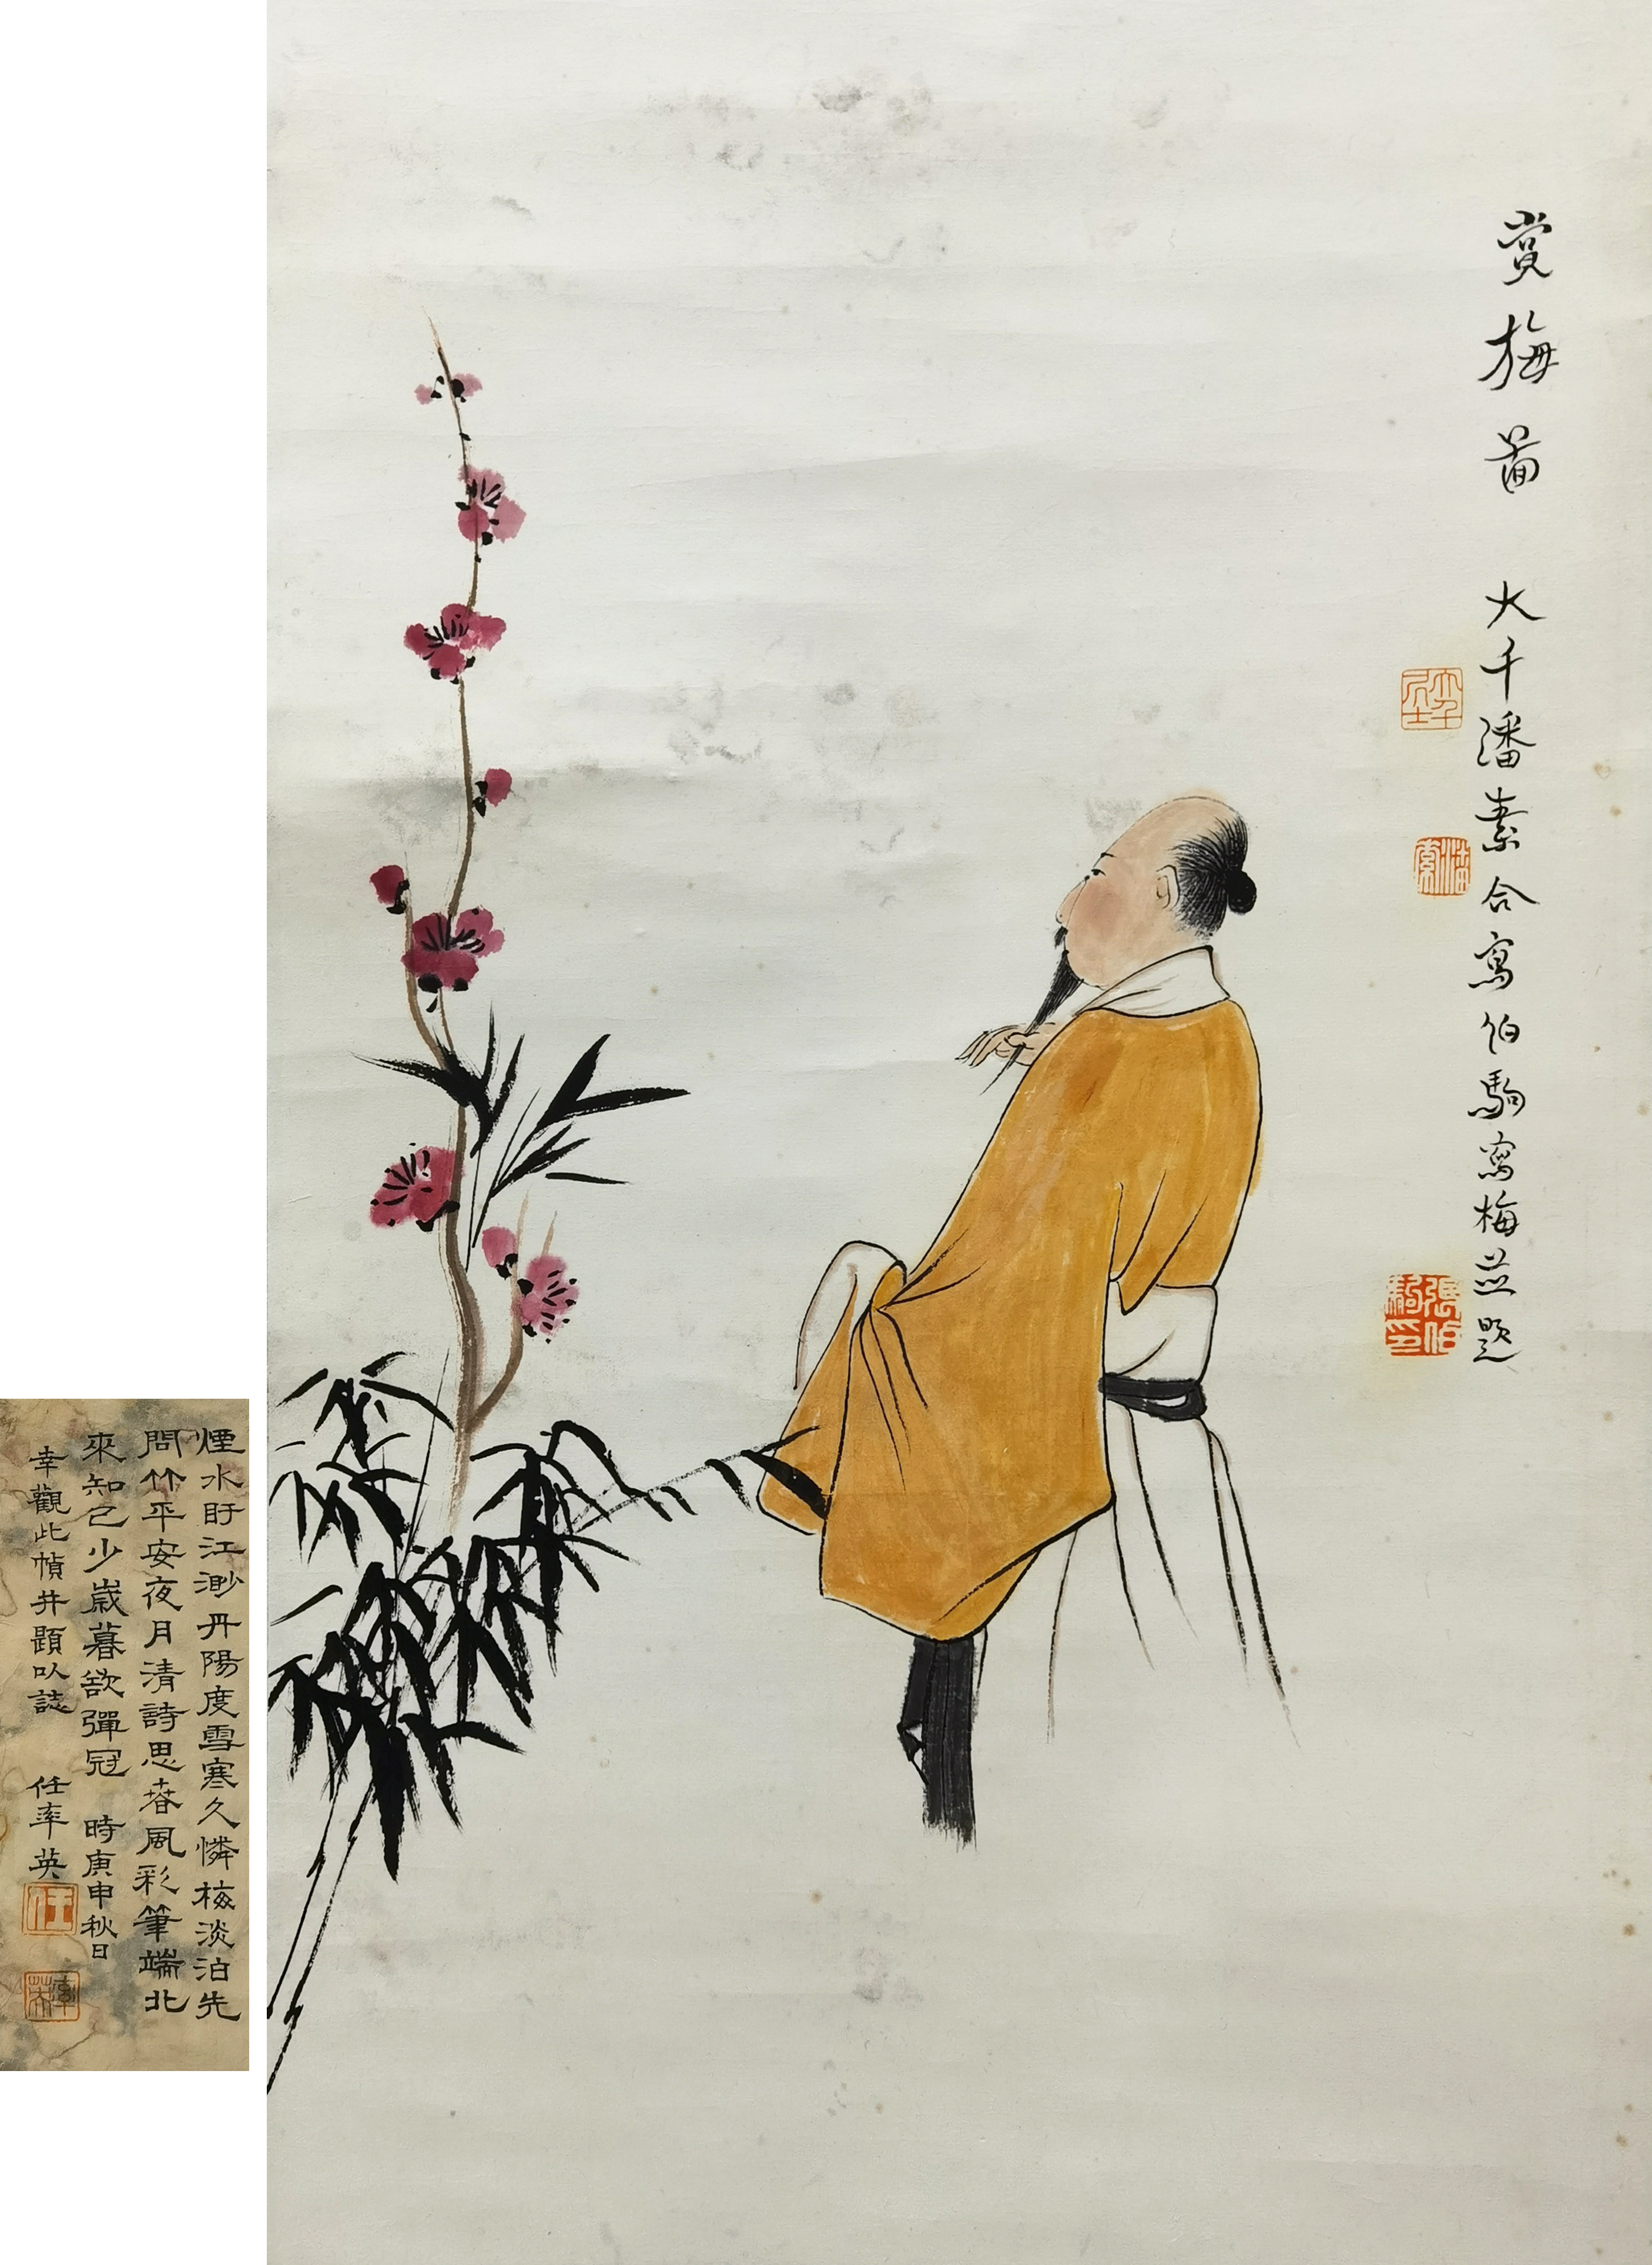 賞梅啚 大千潘素合寫伯駒寫梅並題
大千居士
潘素
張伯駒印
煙水盱江渺丹陽度雪寒久憐梅淡泊先
問竹平安夜月清詩思春風彩筆端北
來知己少歲暮欲彈冠 時庚申秋日
幸觀此幀并題以誌 任率英
任
率英